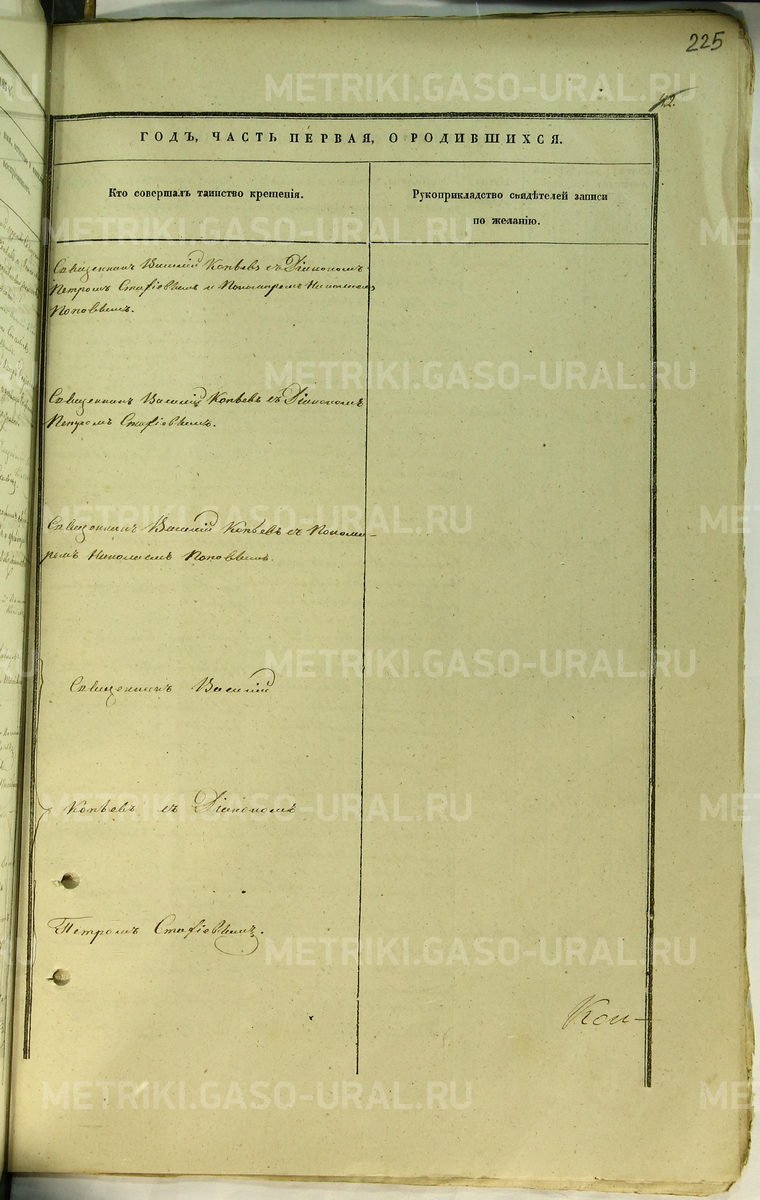 225
42.
ГОДЪ, ЧАСТЬ ПЕРВАЯ, О РОДИВШИХСЯ.
Кто совершалъ таинство крещенія.
Рукоприкладство свидѣтелей записи
по желанію.
Священникъ Василій Копѣевъ съ Діакономъ
Петромъ Стафіевымъ и Пономаремъ Николаемъ
Поповымъ.
Священникъ Василій Копѣевъ съ Діакономъ
Петромъ Стафіевымъ.
Священникъ Василій Копѣевъ съ Понома-
ремъ Николаемъ Поповымъ.
Священникъ Василій
Копѣевъ съ Діакономъ
Петромъ Стафіевымъ.
METRIKI.GASO-URAL.RU